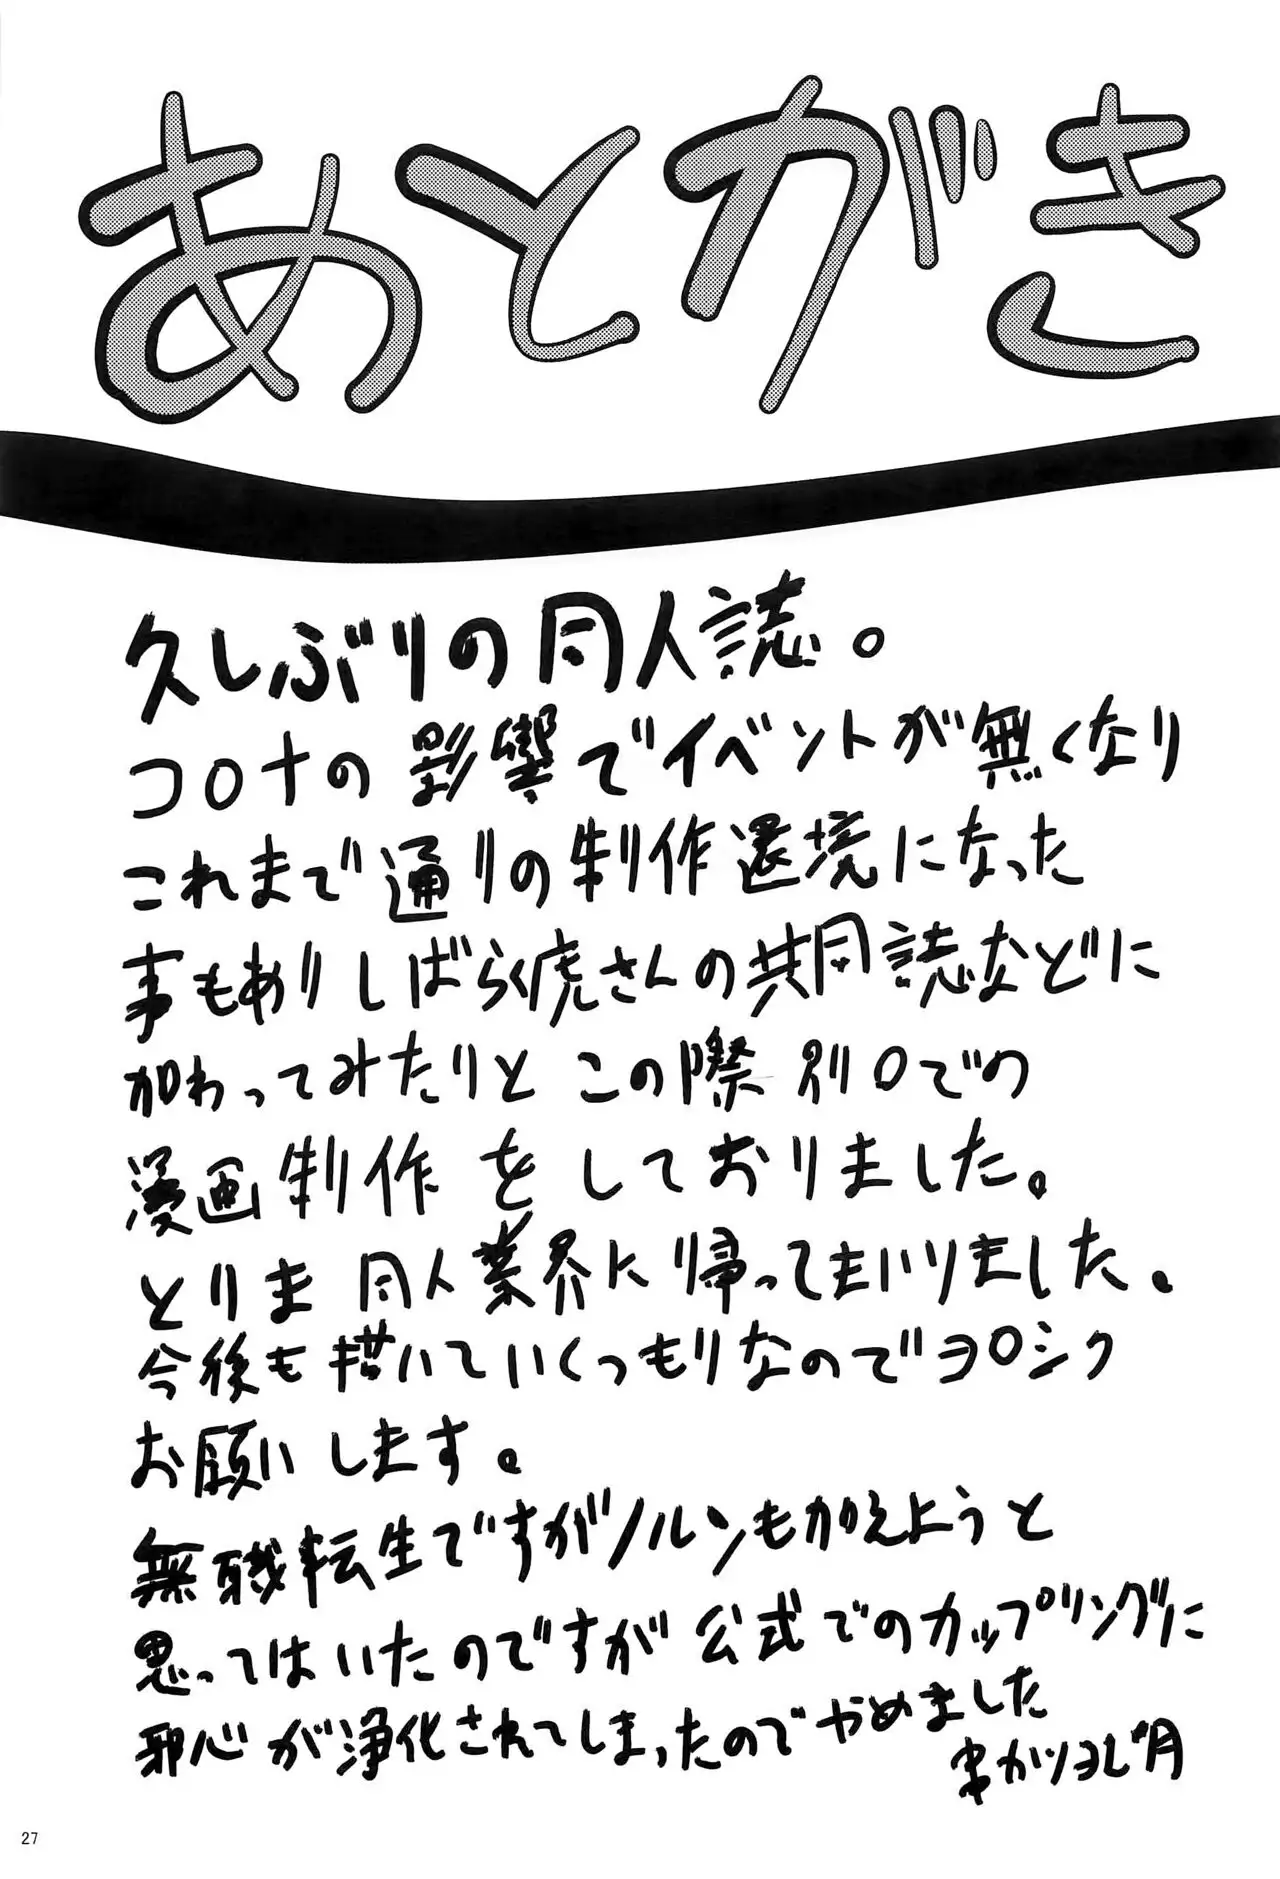 あとがき
久しぶりの同人誌。
コロナの影響でイベントが無くなり
これまで通りの制作環境になった
事もありしばらく虎さんの共同誌などに
加わってみたりと この際 別口での
漫画制作 をしておりました。
とりま 同人業界に帰ってまいりました。
今後も描いていくつもりなのでヨロシク
お願いします。
無職転生ですがノルンもかえようと
思ってはいたのですが 公式でのカップリングに
邪心が浄化されてしまったのでやめました
串かツヨし
27